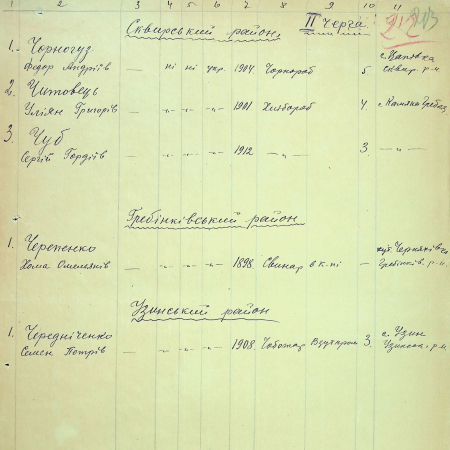 1 2 3 4 5 6 7 8 9 10 11
Сквирський район. II Черга. 212 213
1. Чорногуз
Федор Андріїв — ні ні укр. 1904 Чорнороб 5 с. Шапівка сквир. р-н.
2. Читовець
Уліян Григорів — -„- -„- -„- 1901 Хлібороб 4 с. Камяна Гребля
3. Чуб
Сергій Гордіїв — -„- -„- -„- 1912 -„- 3. -„-
Гребінківський район
1. Черепенко хут.
Хома Омелянів — -„- -„- -„- 1898 Свинар в к-пі — Гребінків. р-н.
Узинський район
1. Чередніченко с. Узин
Семен Петрів — -„- -„- -„- 1908 Чоботар 3. Узинськ. р-н.